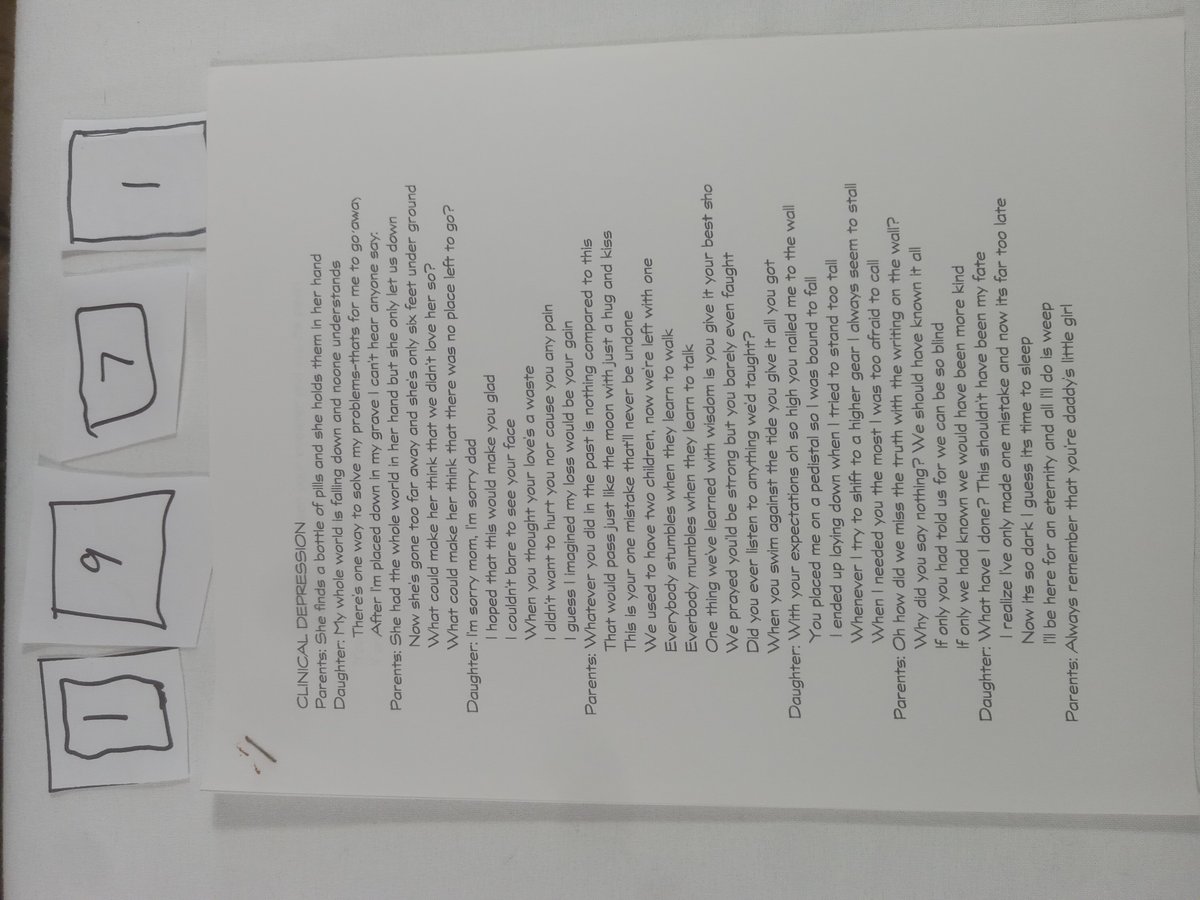 1 9 7 1
CLINICAL DEPRESSION
Parents: She finds a bottle of pills and she holds them in her hand
Daughter: My whole world is falling down and noone understands
There's one way to solve my problems-thats for me to go away
After I'm placed down in my grave I can't hear anyone say:
Parents: She had the whole world in her hand but she only let us down
Now she's gone too far away and she's only six feet under ground
What could make her think that we didn't love her so?
What could make her think that there was no place left to go?
Daughter: I'm sorry mom, I'm sorry dad
I hoped that this would make you glad
I couldn't bare to see your face
When you thought your love's a waste
I didn't want to hurt you nor cause you any pain
I guess I imagined my loss would be your gain
Parents: Whatever you did in the past is nothing compared to this
That would pass just like the moon with just a hug and kiss
This is your one mistake that'll never be undone
We used to have two children, now we're left with one
Everybody stumbles when they learn to walk
Everbody mumbles when they learn to talk
One thing we've learned with wisdom is you give it your best sho
We prayed you'd be strong but you barely even fought
Did you ever listen to anything we'd taught?
When you swim against the tide you give it all you got
Daughter: With your expectations oh so high you nailed me to the wall
You placed me on a pedistal so I was bound to fall
I ended up laying down when I tried to stand too tall
Whenever I try to shift to a higher gear I always seem to stall
When I needed you the most I was too afraid to call
Parents: Oh how did we miss the truth with the writing on the wall?
Why did you say nothing? We should have known it all
If only you had told us for we can be so blind
If only we had known we would have been more kind
Daughter: What have I done? This shouldn't have been my fate
I realize I've only made one mistake and now its far too late
Now its so dark I guess its time to sleep
I'll be here for an eternity and all I'll do is weep
Parents: Always remember that you're daddy's little girl